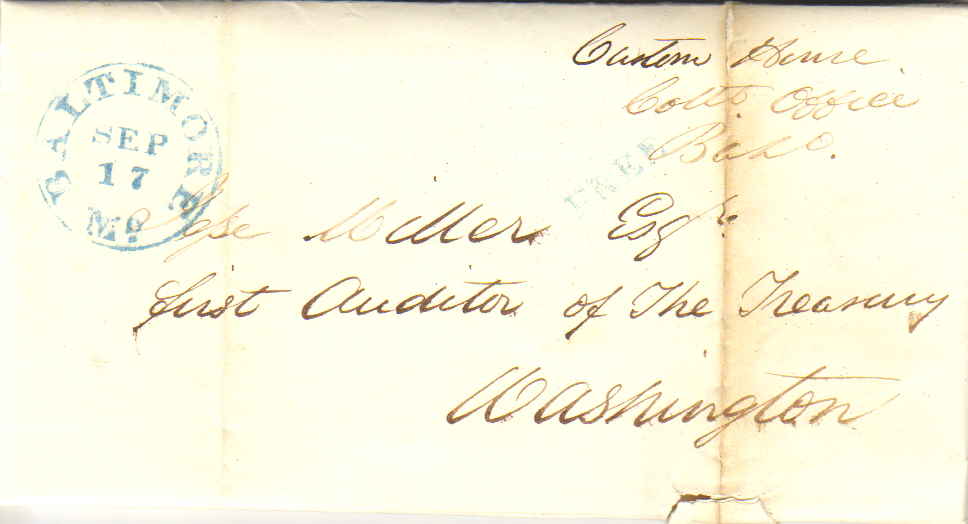 Custom House
Collrs Office
Balto.
BALTIMORE Md.
SEP
17
FREE
Jesse Miller Esqr.
first Auditor of The Treasury
Washington